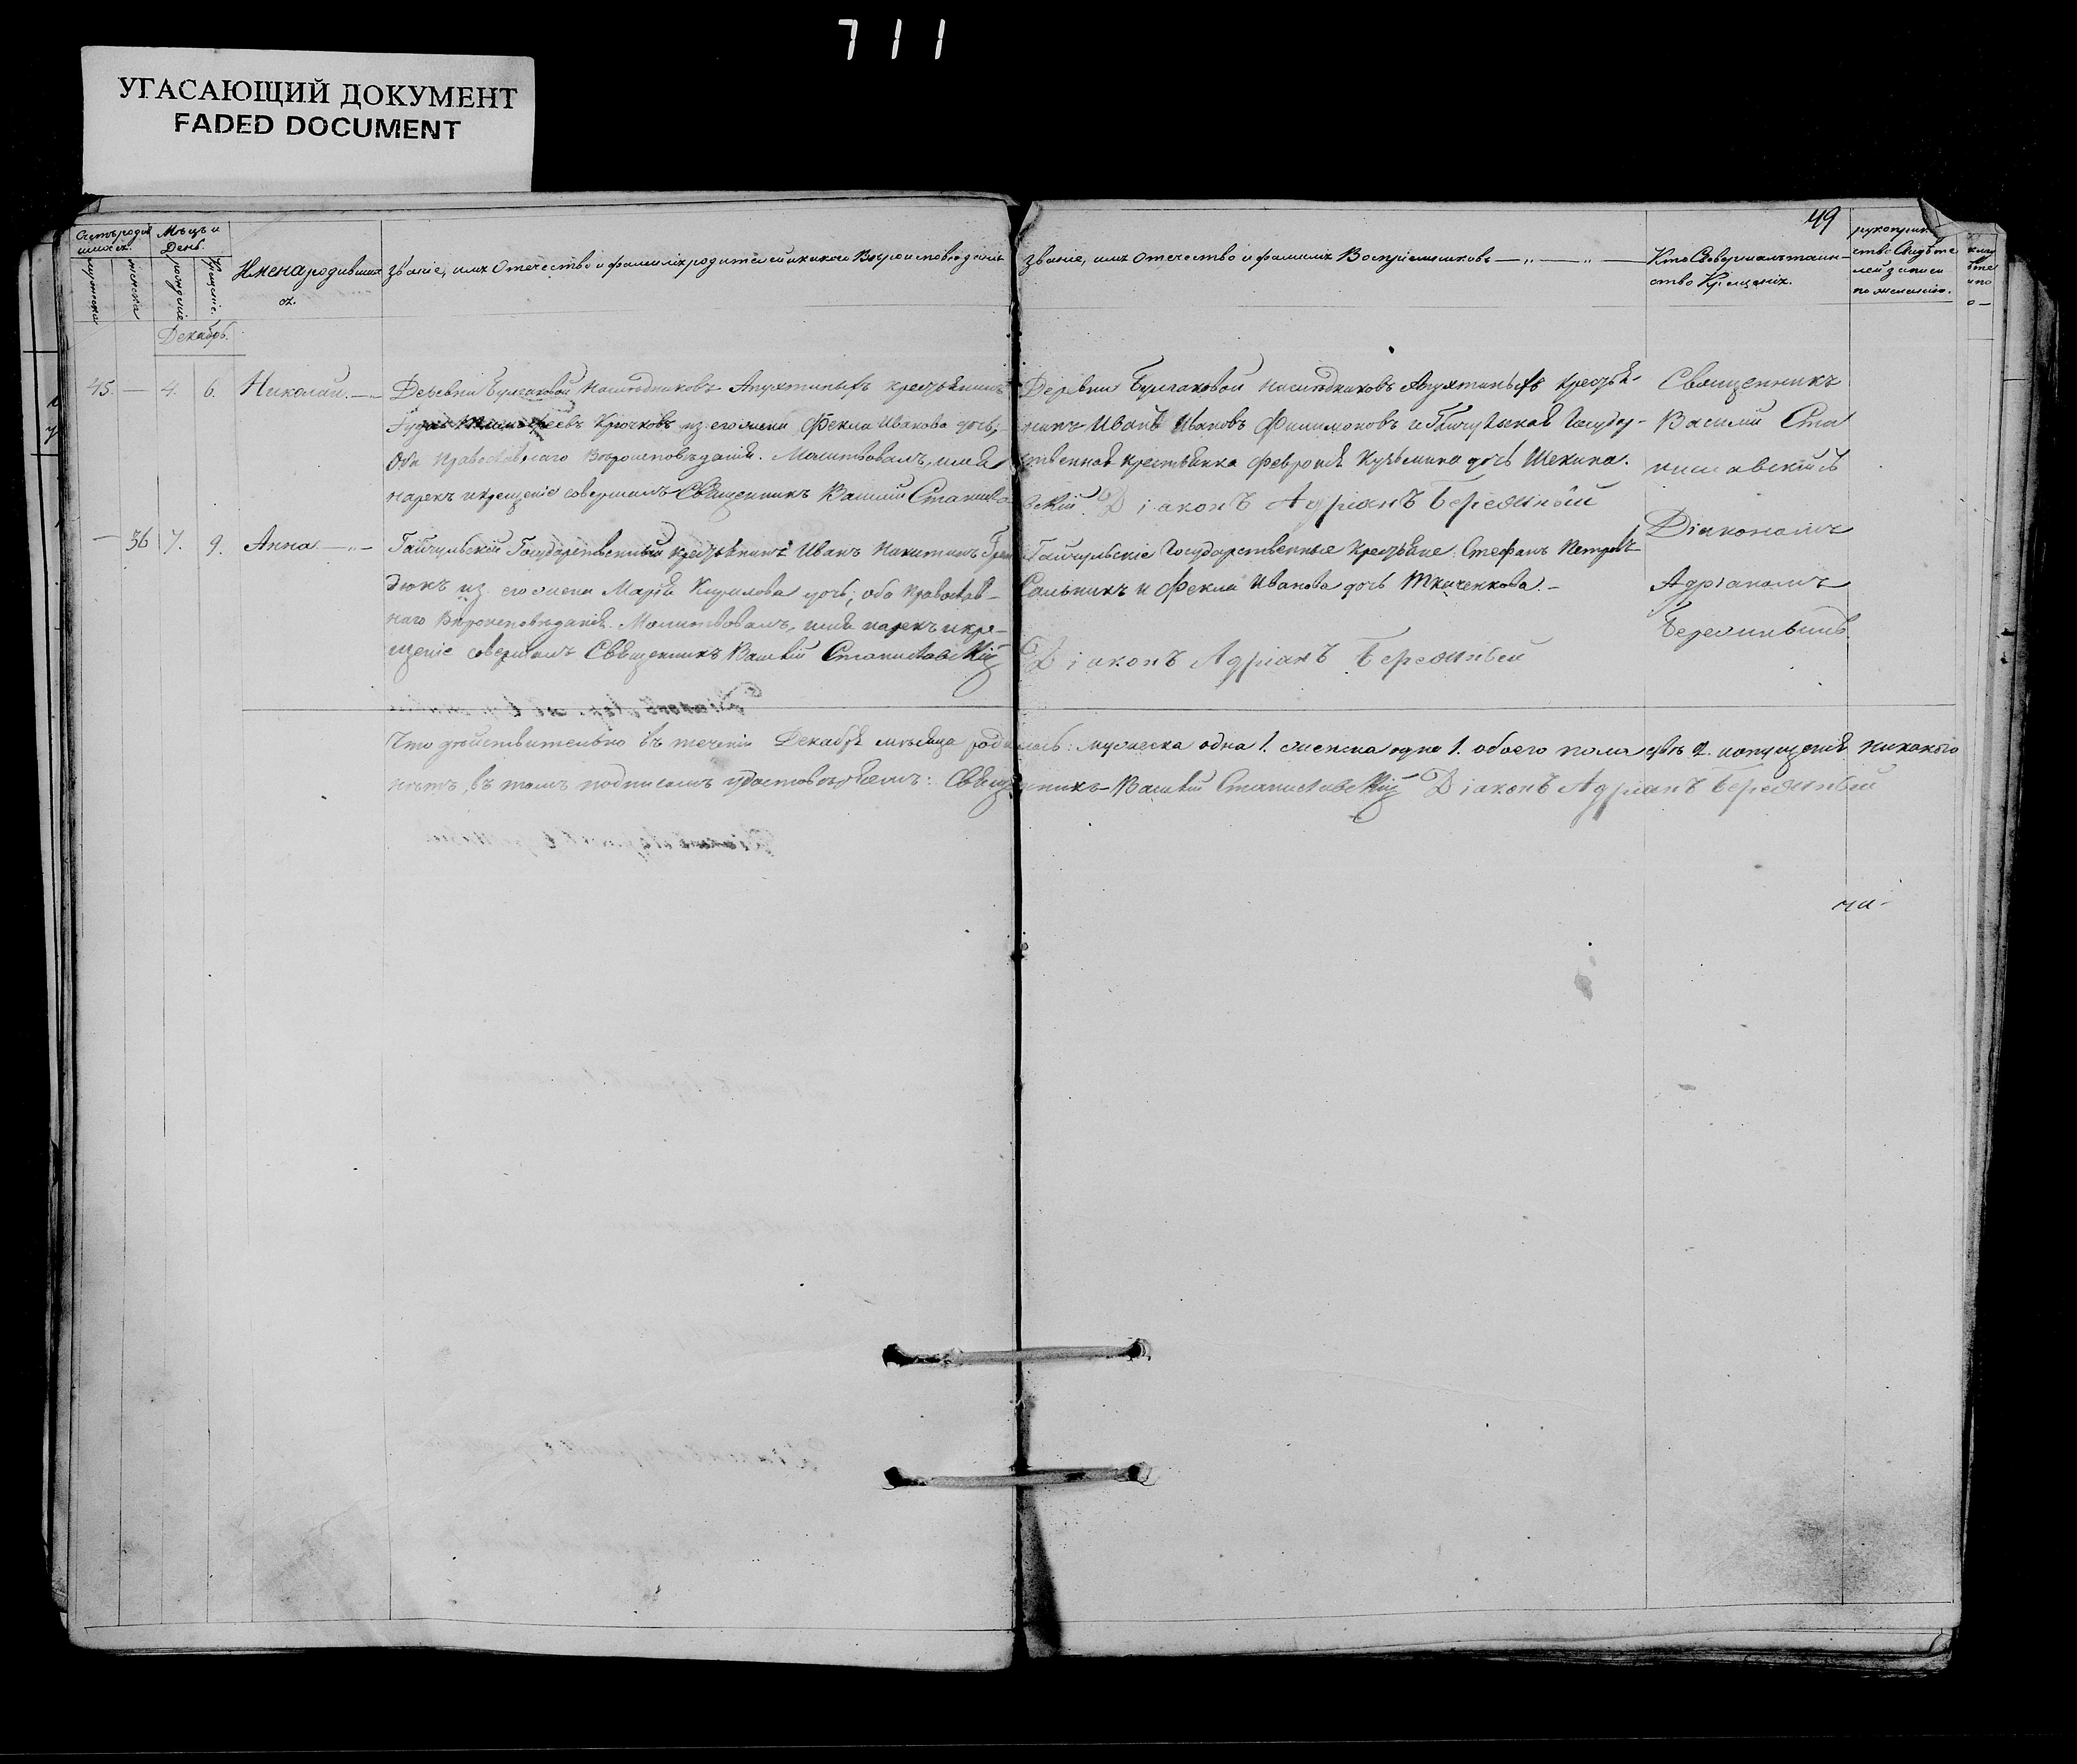 711
УГАСАЮЩИЙ ДОКУМЕНТ
FADED DOCUMENT
49
Мѣцъ и
День.
Имена родивших
ся.
Званіе, имя Отечество и фамилія родителей и какого Вѣроисповѣданія
Званіе, имя Отечество и фамилія Воспріемниковъ
Кто Совершалъ таин-
ство Крещенія.
рукоприк
ство Свидѣте
лей записи
по желанію.
мужеска
женска
рожденіе
Крещеніе.
Декабрь.
45. — 4. 6. Николай.
Деревни Булгаковой Наслѣдниковъ Апухтиныхъ крестьянинъ
Крючковъ из его жена Фекла Иванова дочь,
Оба Православнаго Вѣроисповѣданія. Молитвовалъ, имя
нарекъ и крещеніе совершалъ Священникъ Василій Станисла
Деревни Булгаковой наслѣдниковъ Апухтиныхъ Крестья-
нинъ Иванъ Ивановъ Филимоновъ и Гайчульская Государ-
ственная крестьянка Февронія Кузьмина дочь Шекина.
вскій. Діаконъ Адріанъ Бережный
Священникъ
Василій Ста
ниславскій съ
Діакономъ
Адріаномъ
Бережнымъ
— 36 7. 9. Анна
Гайчульскій Государственный крестьянинъ Иванъ Никитинъ
дюкъ из его жена Марія Кирилова дочь; оба Православ-
наго Вѣроисповѣданія. Молитвовалъ, имя нарекъ и кре-
щеніе совершалъ Священникъ Василій Станиславскій
Гайчульскіе Государственные Крестьяне: Стефанъ Петровъ
Сальникъ и Фекла Иванова дочь Ткаченкова. —
Діаконъ Адріанъ Бережный
Что дѣйствительно въ теченіи Декабря мѣсяца родилось: мужеска одна 1. женска одна 1. обоего пола двѣ 2. и опущенія никакого
нѣтъ, въ томъ подписомъ удостовѣряемъ: Священникъ Василій Станиславскій Діаконъ Адріанъ Бережный